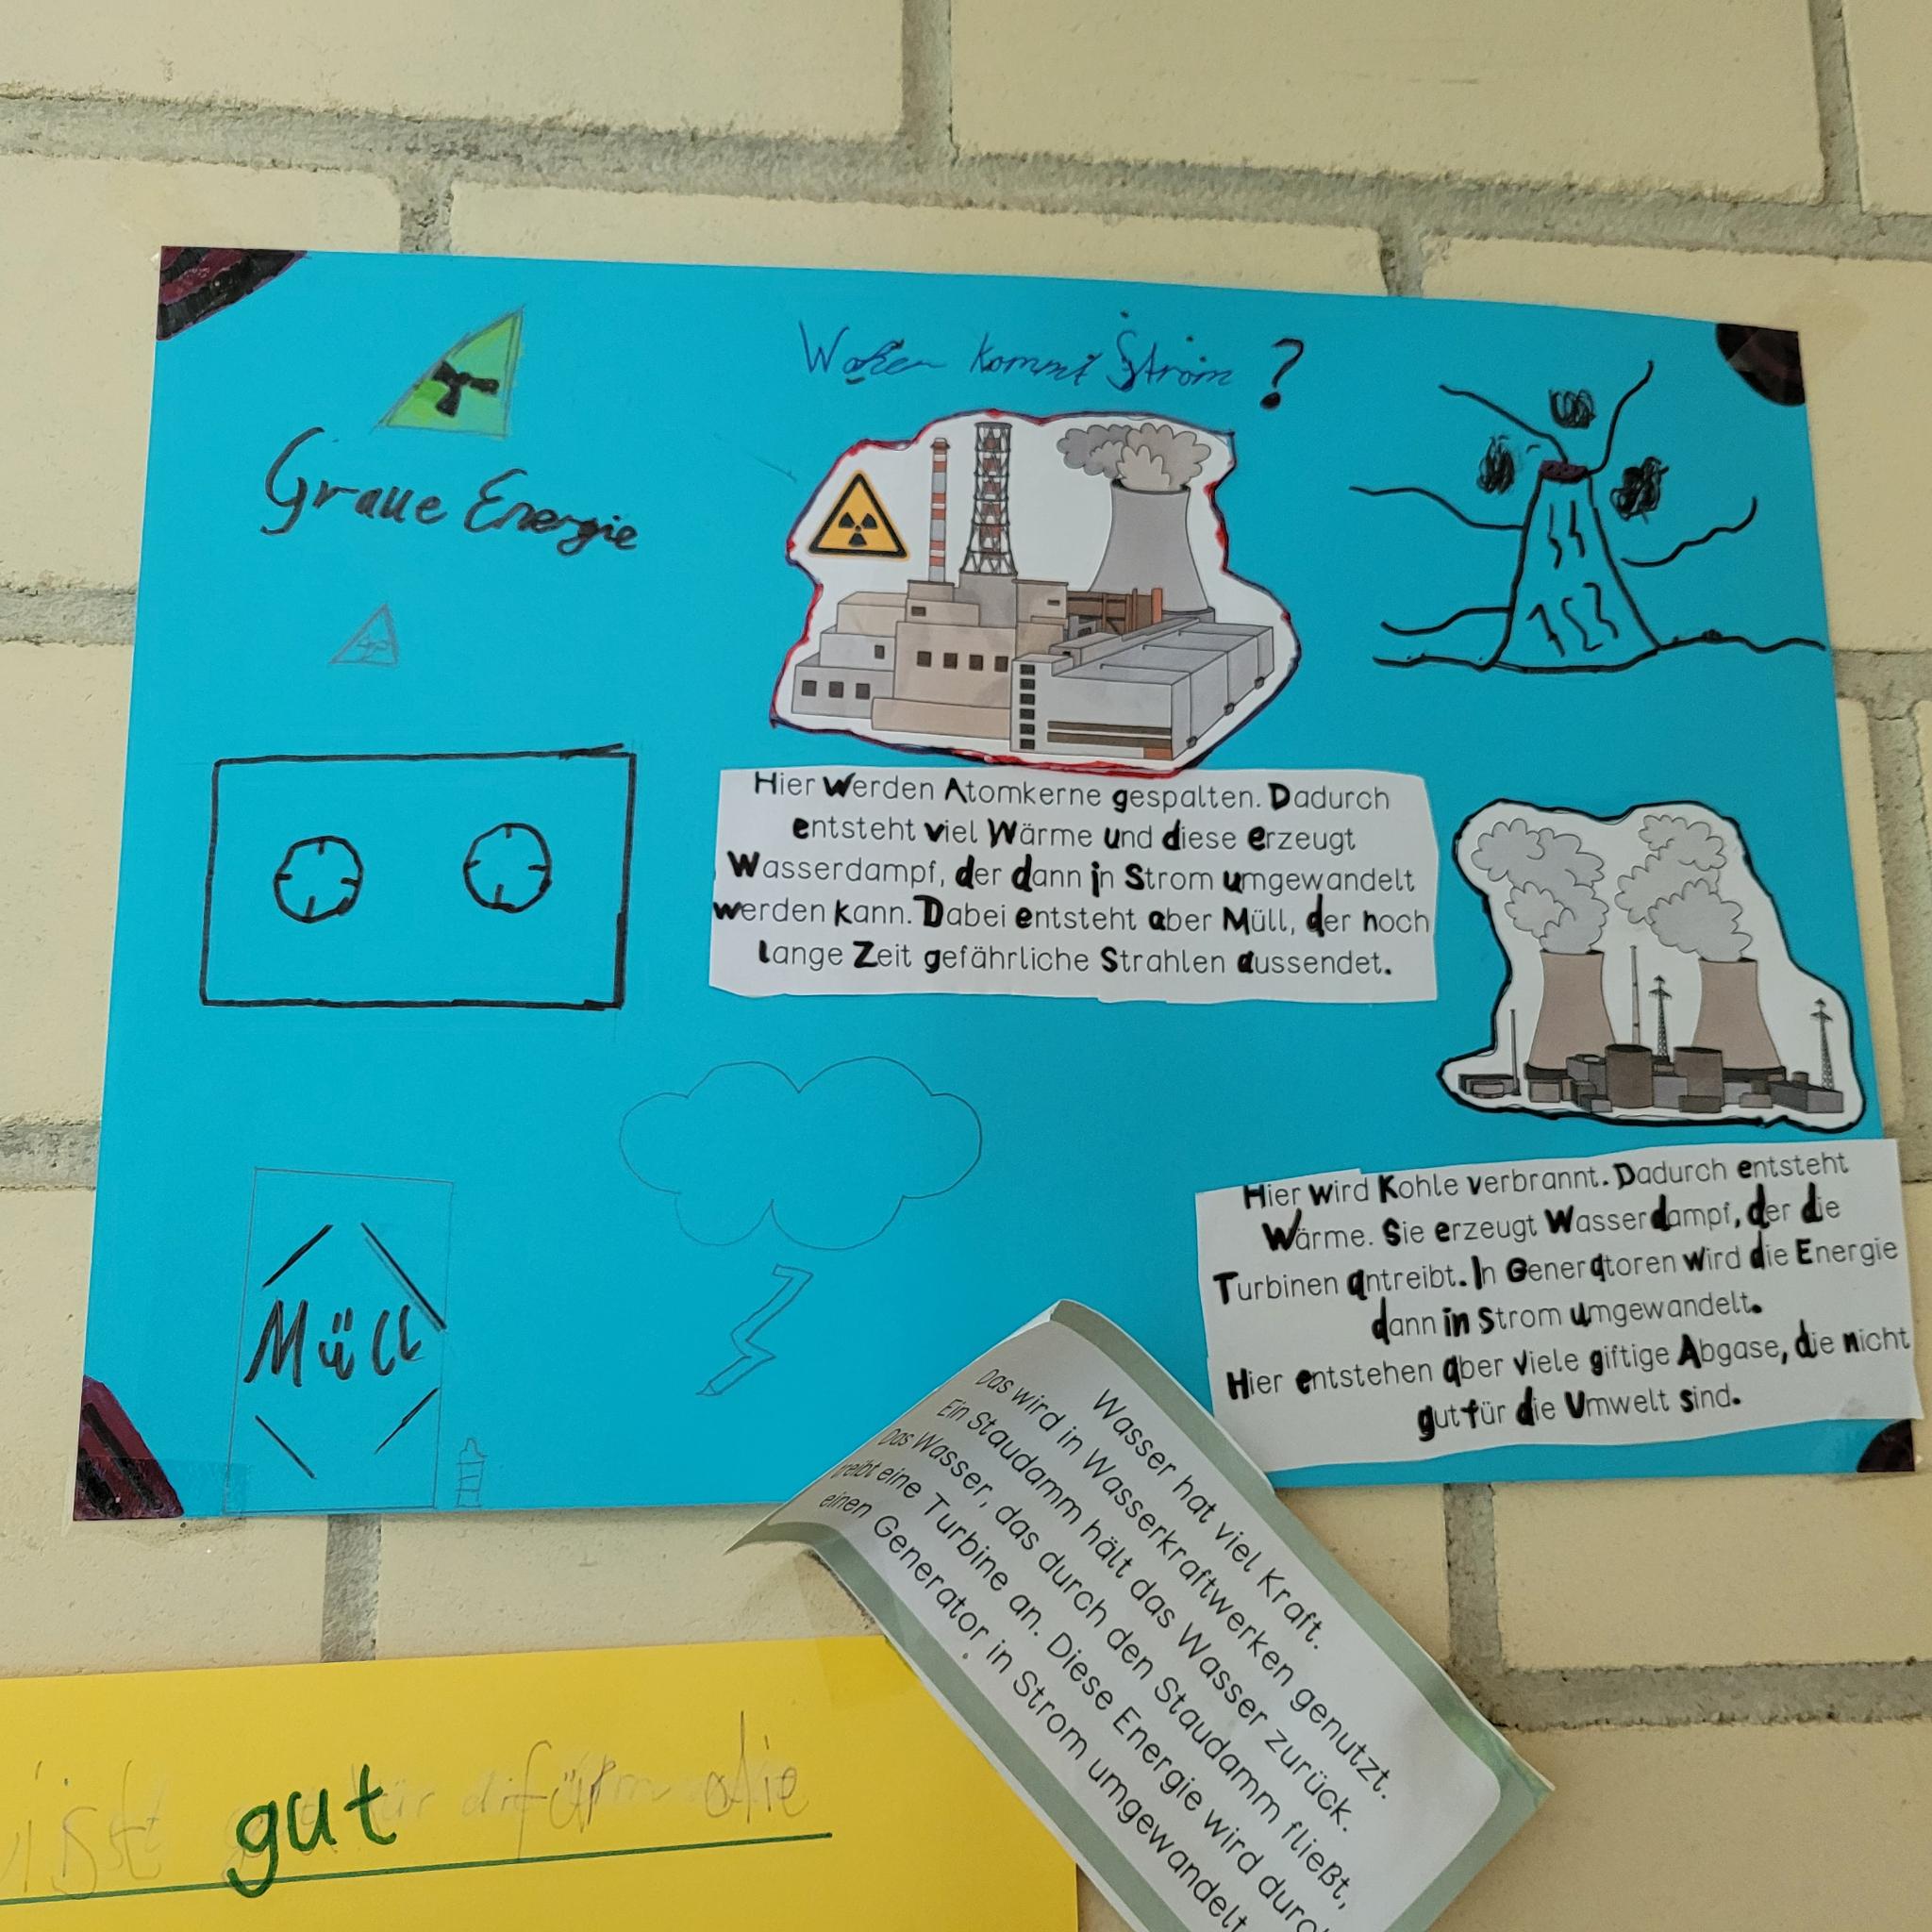 Woher kommt Strom?
Graue Energie
Hier werden Atomkerne gespalten. Dadurch
entsteht viel Wärme und diese erzeugt
Wasserdampf, der dann in Strom umgewandelt
werden kann. Dabei entsteht aber Müll, der noch
lange Zeit gefährliche Strahlen aussendet.
Hier wird Kohle verbrannt. Dadurch entsteht
Wärme. Sie erzeugt Wasserdampf, der die
Turbinen antreibt. In Generatoren wird die Energie
dann in Strom umgewandelt.
Hier entstehen aber viele giftige Abgase, die nicht
gut für die Umwelt sind.
Müll
Wasser hat viel Kraft.
Das wird in Wasserkraftwerken genutzt.
Ein Staudamm hält das Wasser zurück.
Das Wasser, das durch den Staudamm fließt,
treibt eine Turbine an. Diese Energie wird durch
einen Generator in Strom umgewandelt
ist gut für die